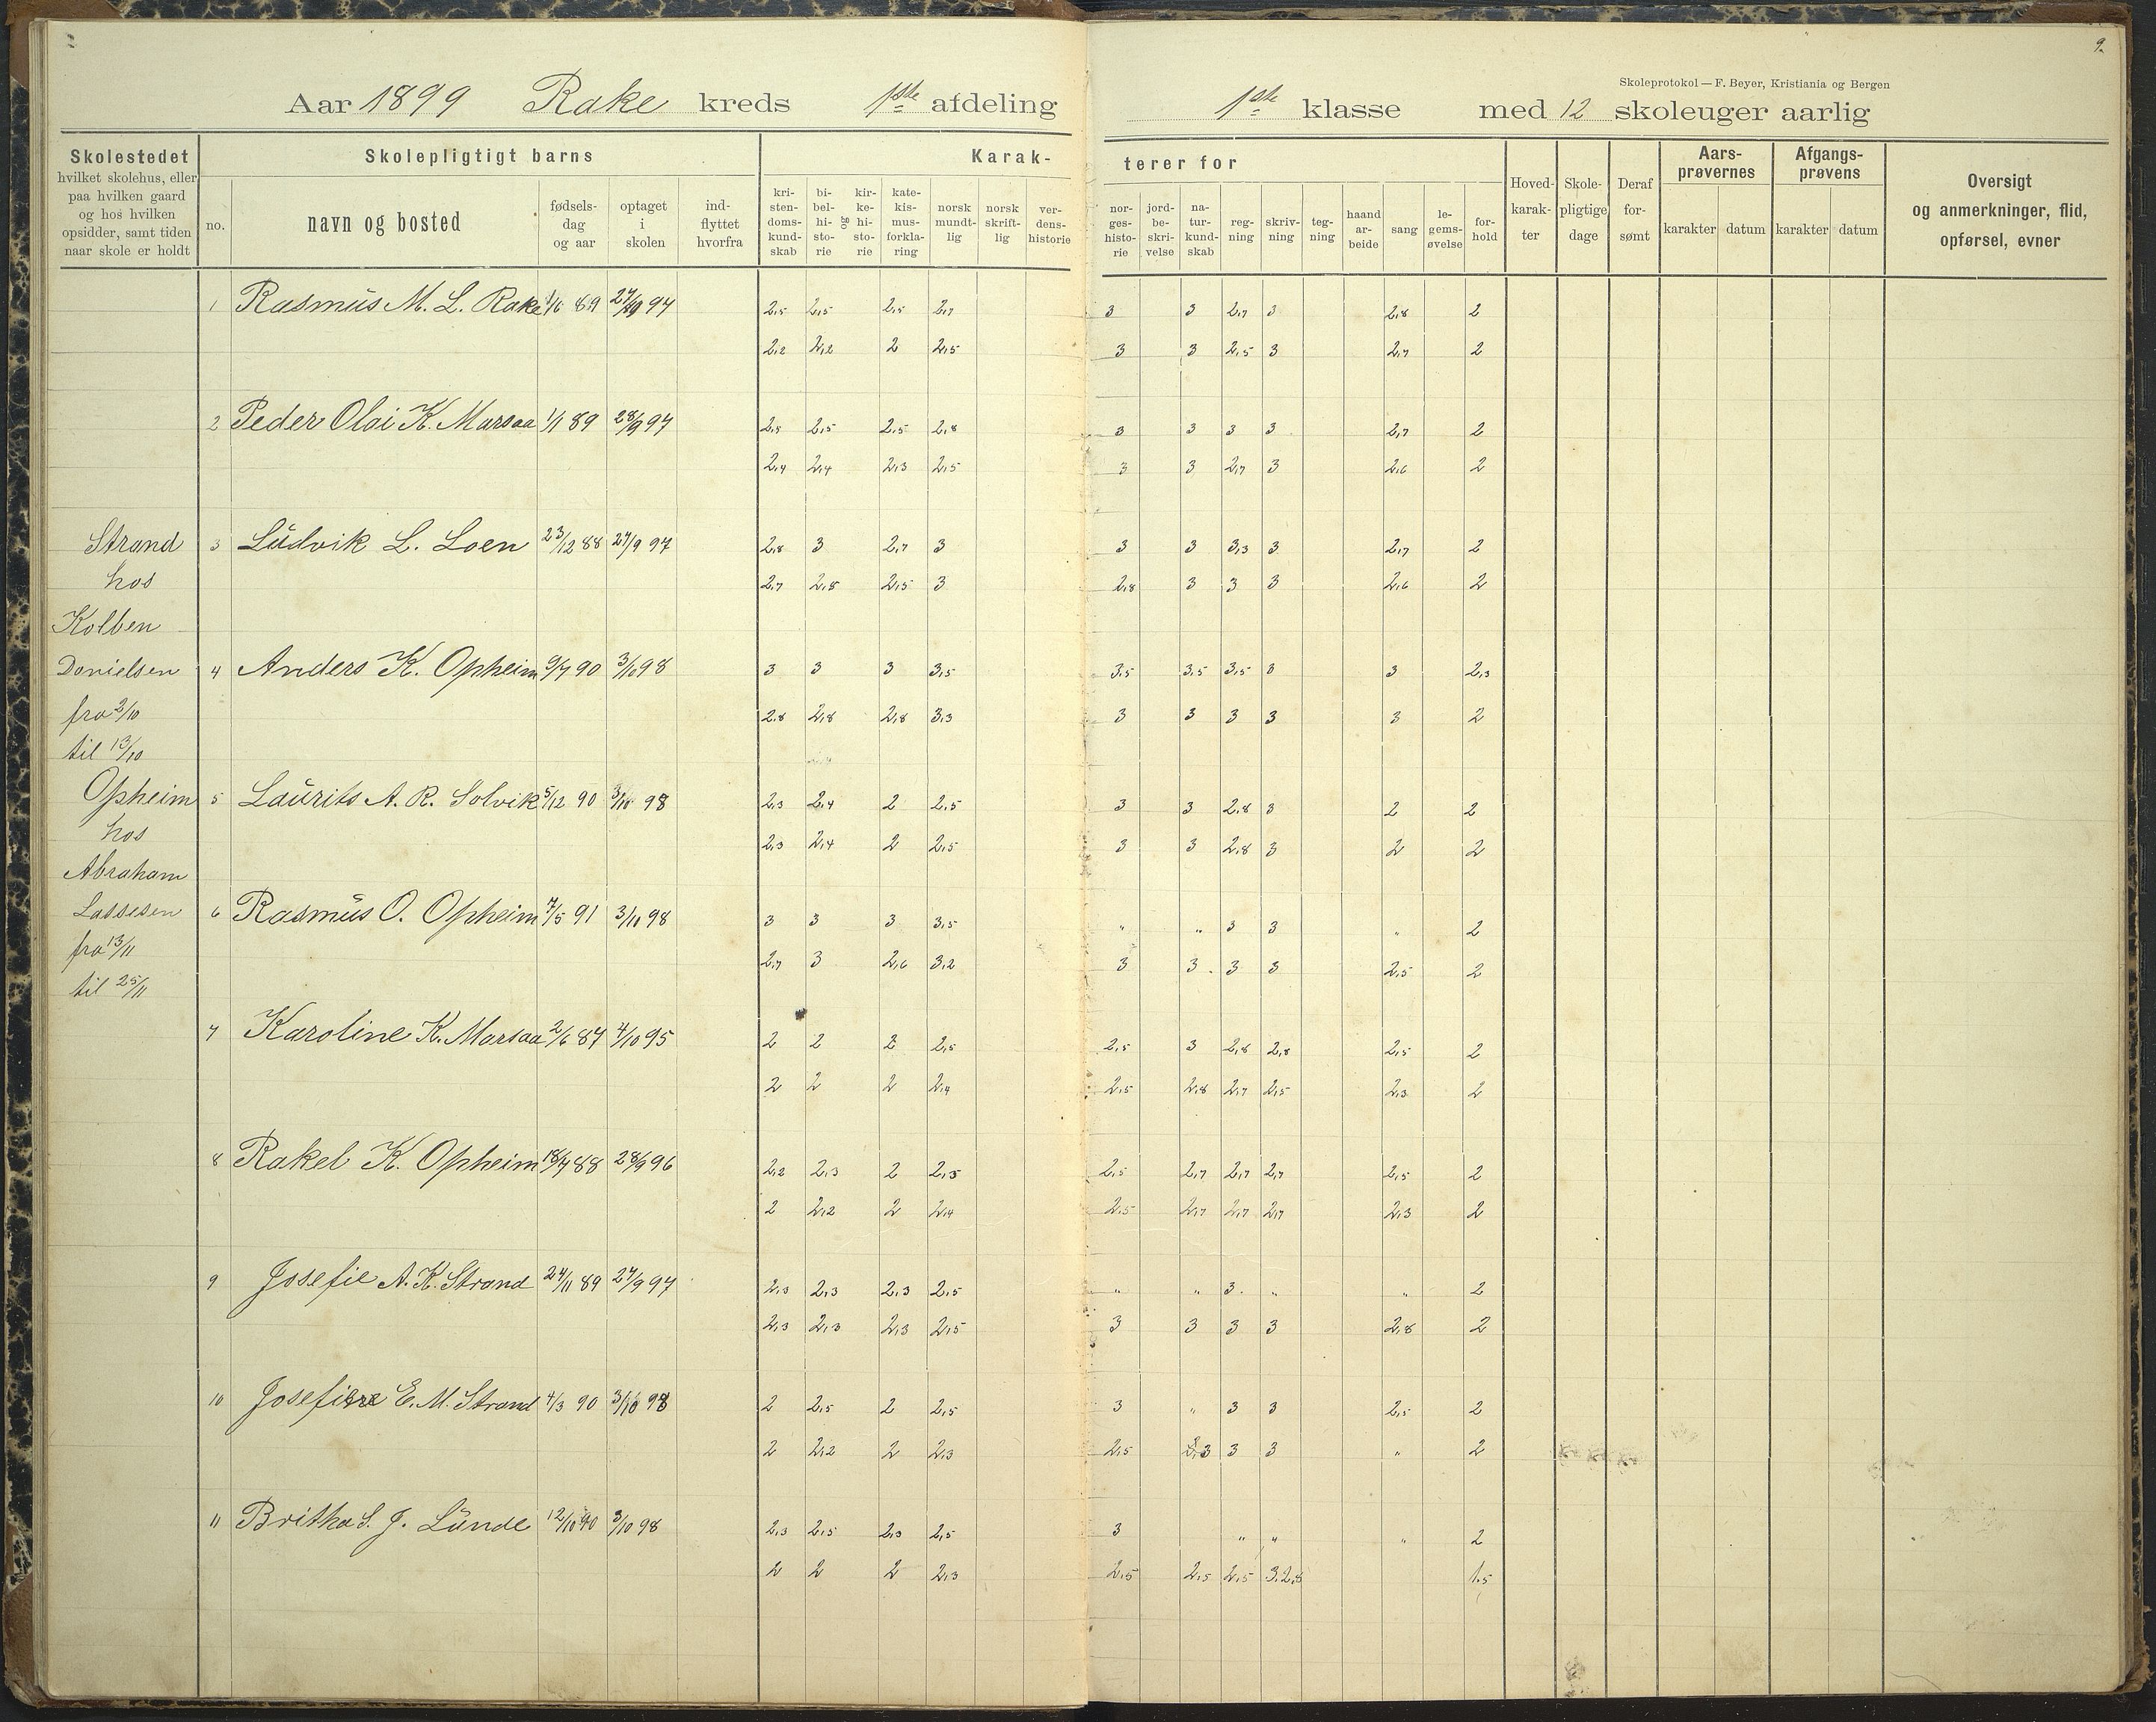 9.
Skoleprotokol — F. Beyer, Kristiania og Bergen
Aar 1899 Rake kreds 1ste afdeling 1ste klasse med 12 skoleuger aarlig
Skolestedet
hvilket skolehus, eller
paa hvilken gaard
og hos hvilken
opsidder, samt tiden
naar skole er holdt
no.
Skolepligtigt barns
navn og bosted
fødsels-
dag
og aar
optaget
i
skolen
ind-
flyttet
hvorfra
Karak-
terer for
kri-
sten-
doms-
kund-
skab
bi-
bel-
hi-
sto-
rie
og
kir-
ke-
hi-
sto-
rie
kate-
kis-
mus-
forkla-
ring
norsk
mundt-
lig
norsk
skrift-
lig
ver-
dens-
historie
nor-
ges-
histo-
rie
jord-
be-
skri-
velse
na-
tur-
kund-
skab
reg-
ning
skriv-
ning
teg-
ning
haand
ar-
beide
sang
le-
gems-
øvelse
for-
hold
Hoved-
karak-
ter
Skole-
pligtige
dage
Deraf
for-
sømt
Aars-
prøvernes
karakter datum
Afgangs-
prøvens
karakter datum
Oversigt
og anmerkninger, flid,
opførsel, evner
Strand
hos
Kolben
Danielsen
fra 2/10
til 13/10
Opheim
hos
Abraham
Lassesen
fra 13/11
til 25/11
1 Rasmus M. L. Rake 1/6 89 27/9 97 2,5 2,5 2,5 2,7 3 3 2,7 3 2,8 2
2,2 2,2 2 2,5 3 3 2,5 3 2,7 2
2 Peder Olai K. Marsaa 1/1 89 28/9 97 2,5 2,5 2,5 2,8 3 3 3 3 2,7 2
2,4 2,4 2,3 2,5 3 3 2,7 3 2,6 2
3 Ludvik L. Loen 23/12 88 27/9 97 2,8 3 2,7 3 3 3 3,3 3 2,7 2
2,7 2,8 2,5 3 2,8 3 3 3 2,6 2
4 Anders K. Opheim 9/7 90 3/10 98 3 3 3 3,5 3,5 3,5 3,5 3 3 2,3
2,8 2,8 2,8 3,3 3 3 3 3 3 2
5 Laurits A. R. Solvik 5/12 90 3/10 98 2,3 2,4 2 2,5 3 3 2,8 3 2 2
2,3 2,4 2 2,5 3 3 2,8 3 2 2
6 Rasmus O. Opheim 7/5 91 3/11 98 3 3 3 3,5 " " 3 3 " 2
2,7 3 2,6 3,2 3 3 3 3 2,5 2
7 Karoline K. Marsaa 2/6 87 4/10 95 2 2 2 2,5 2,5 3 2,8 2,8 2,5 2
2 2 2 2,4 2,5 2,8 2,7 2,5 2,3 2
8 Rakel K. Opheim 18/7 88 28/9 96 2,2 2,3 2 2,5 2,5 2,7 2,7 2,7 2,5 2
2 2,2 2 2,4 2,5 2,7 2,7 2,7 2,3 2
9 Josefie A. K. Strand 24/11 89 27/9 97 2,3 2,3 2,3 2,5 " " 3 " " 2
2,3 2,3 2,3 2,5 3 3 3 3 2,8 2
10 Josefine E. M. Strand 4/3 90 3/10 98 2 2,5 2 2,5 3 " 3 3 2,5 2
2 2,2 2 2,3 2,5 3 3 3 " 2
11 Britha S. J. Lunde 12/10 90 3/10 98 2,3 2,5 2,3 2,5 3 " " " 2
2 2 2 2,3 2,5 2,5 2,5 3.2,8 1,5